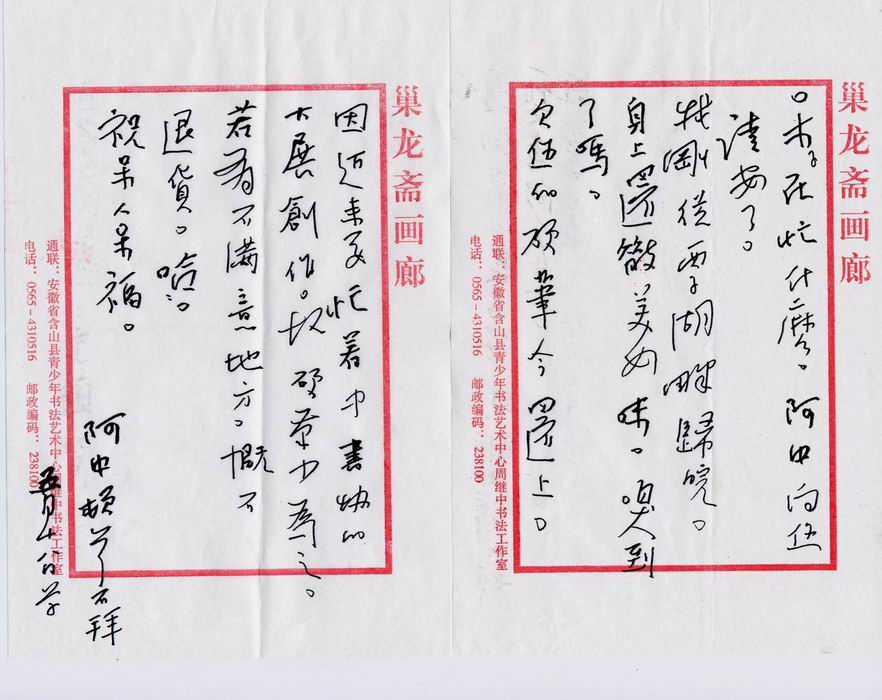 巢龙斋画廊
在忙什麽。阿中向伱
請安了。
我剛從西子湖畔歸皖。
身上還散美女味。嗅到
了嗎。
欠伱的硕華今還上。
通联:安徽省含山县青少年书法艺术中心周继中书法工作室
电话:0565-4310516 邮政编码:238100
巢龙斋画廊
因近来忙着中書协的
大展創作。故硕華少為之。
若有不满意地方。慨不
退貨。哈:。
祝呆人呆福。
阿中頓首百拜
通联:安徽省含山县青少年书法艺术中心周继中书法工作室
电话:0565-4310516 邮政编码:238100